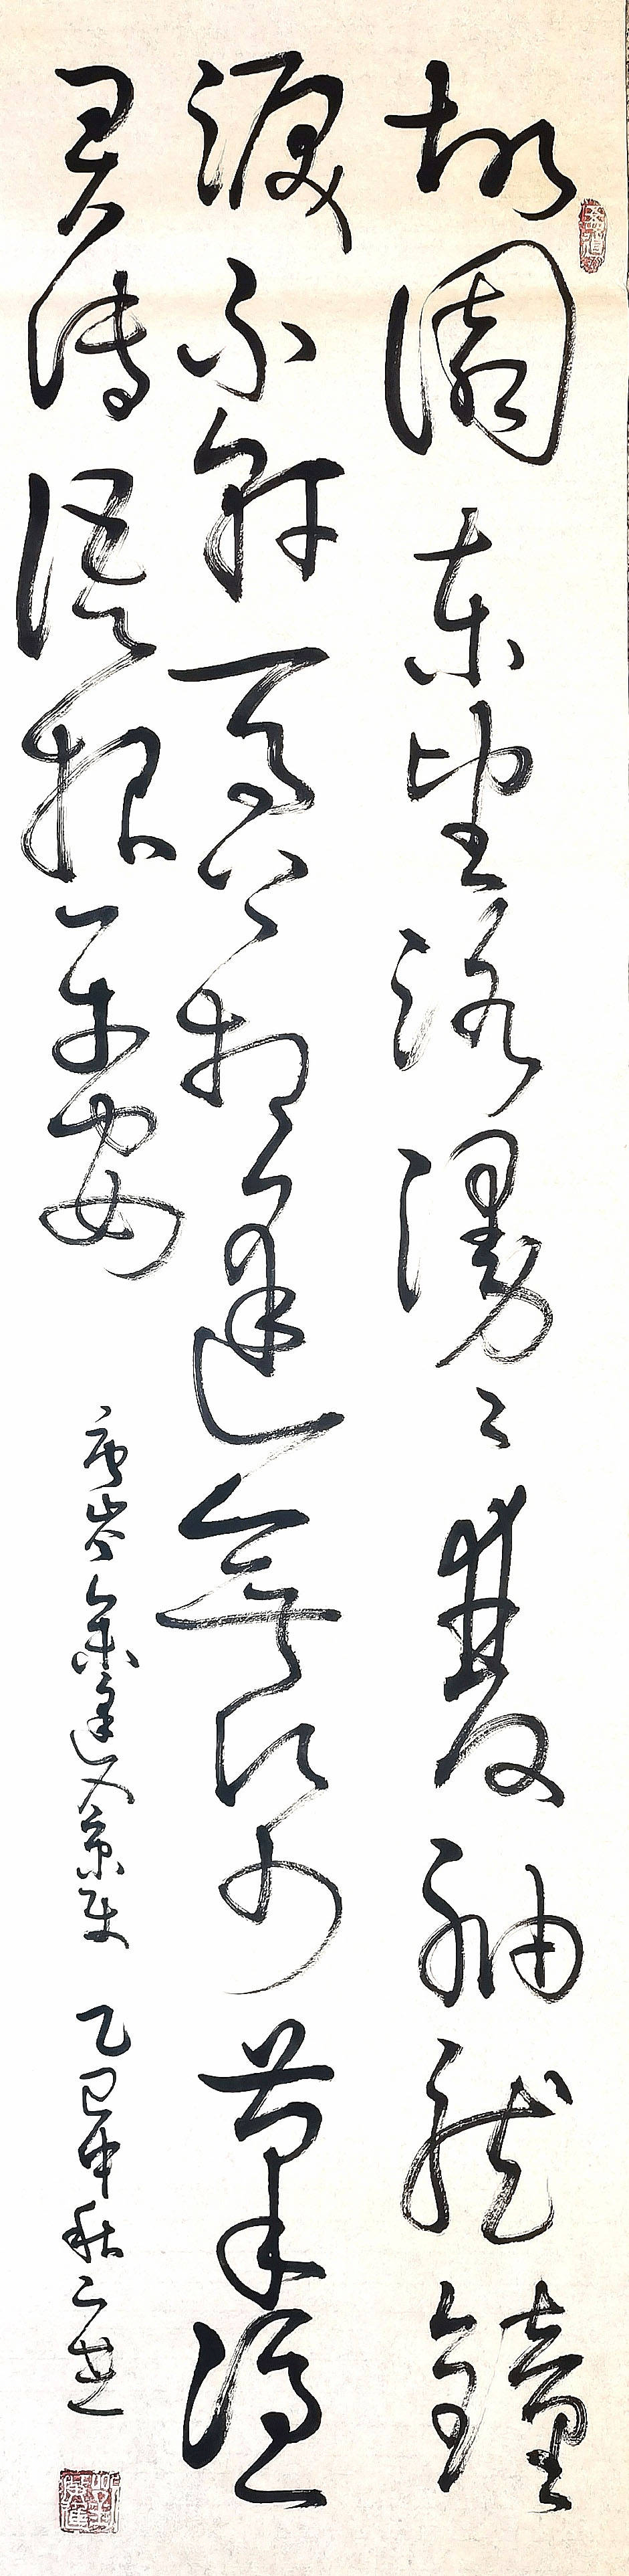 故園東望路漫〻雙袖龍鐘
淚不乾馬上相逢無紙筆憑
君傳語報平安
唐岑參逢入京使 乙巳中秋